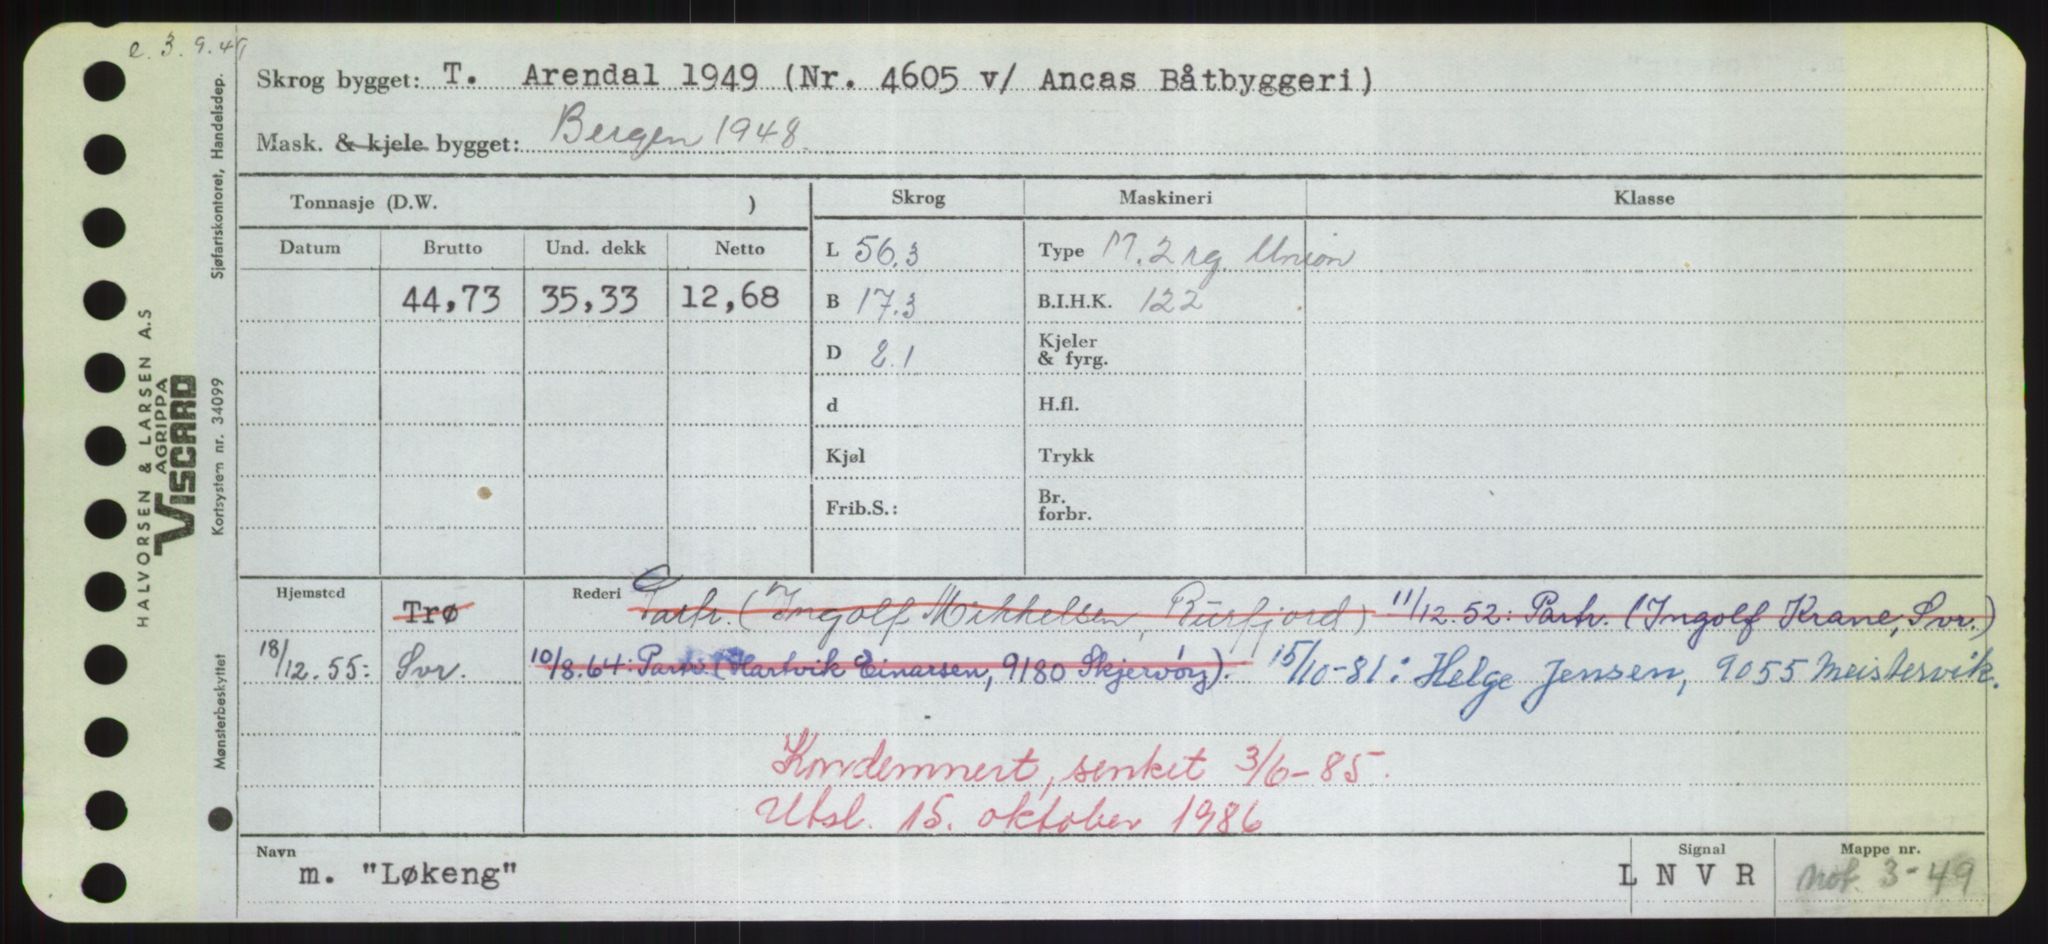 e. 3. 9. 49
Skrog bygget: T. Arendal 1949 (Nr. 4605 v/ Ancas Båtbyggeri)
Mask. & kjele bygget: Bergen 1948
Tonnasje (D.W. ) Skrog Maskineri Klasse
Datum Brutto Und. dekk Netto L 56.3 Type M. 2 sg. Union
44,73 35,33 12,68 B 17.3 B.I.H.K. 122
D 8.1 Kjeler & fyrg.
d H.fl.
Kjøl Trykk
Frib.S.: Br. forbr.
Hjemsted Trø Rederi Partr. (Ingolf Mikkelsen, Burfjord) 11/12.52: Partr. (Ingolf Krane, Svr.)
18/12.55: Svr. 10/8.64: Partr. (Hartvik Einarsen, 9180 Skjervøy). 15/10-81: Helge Jensen, 9055 Meistervik.
Kondemnert, senket 3/6-85.
Utsl. 15. oktober 1986
Navn Signal Mappe nr.
m. "Løkeng" L N V R Not. 3-49
HALVORSEN & LARSEN A.S
AGRIPPA
VISCARD
Mønsterbeskyttet Kortsystem nr. 34099 Sjøfartskontoret, Handelsdep.